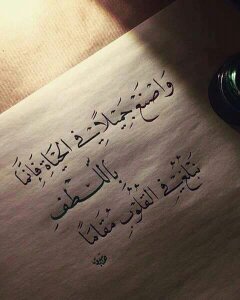 وَاصْنَعْ جَمِيلًا فِي الْحَيَاةِ فَإِنَّمَا
بِاللُّطْفِ
تَبْلُغُ فِي الْقُلُوبِ مَقَامًا